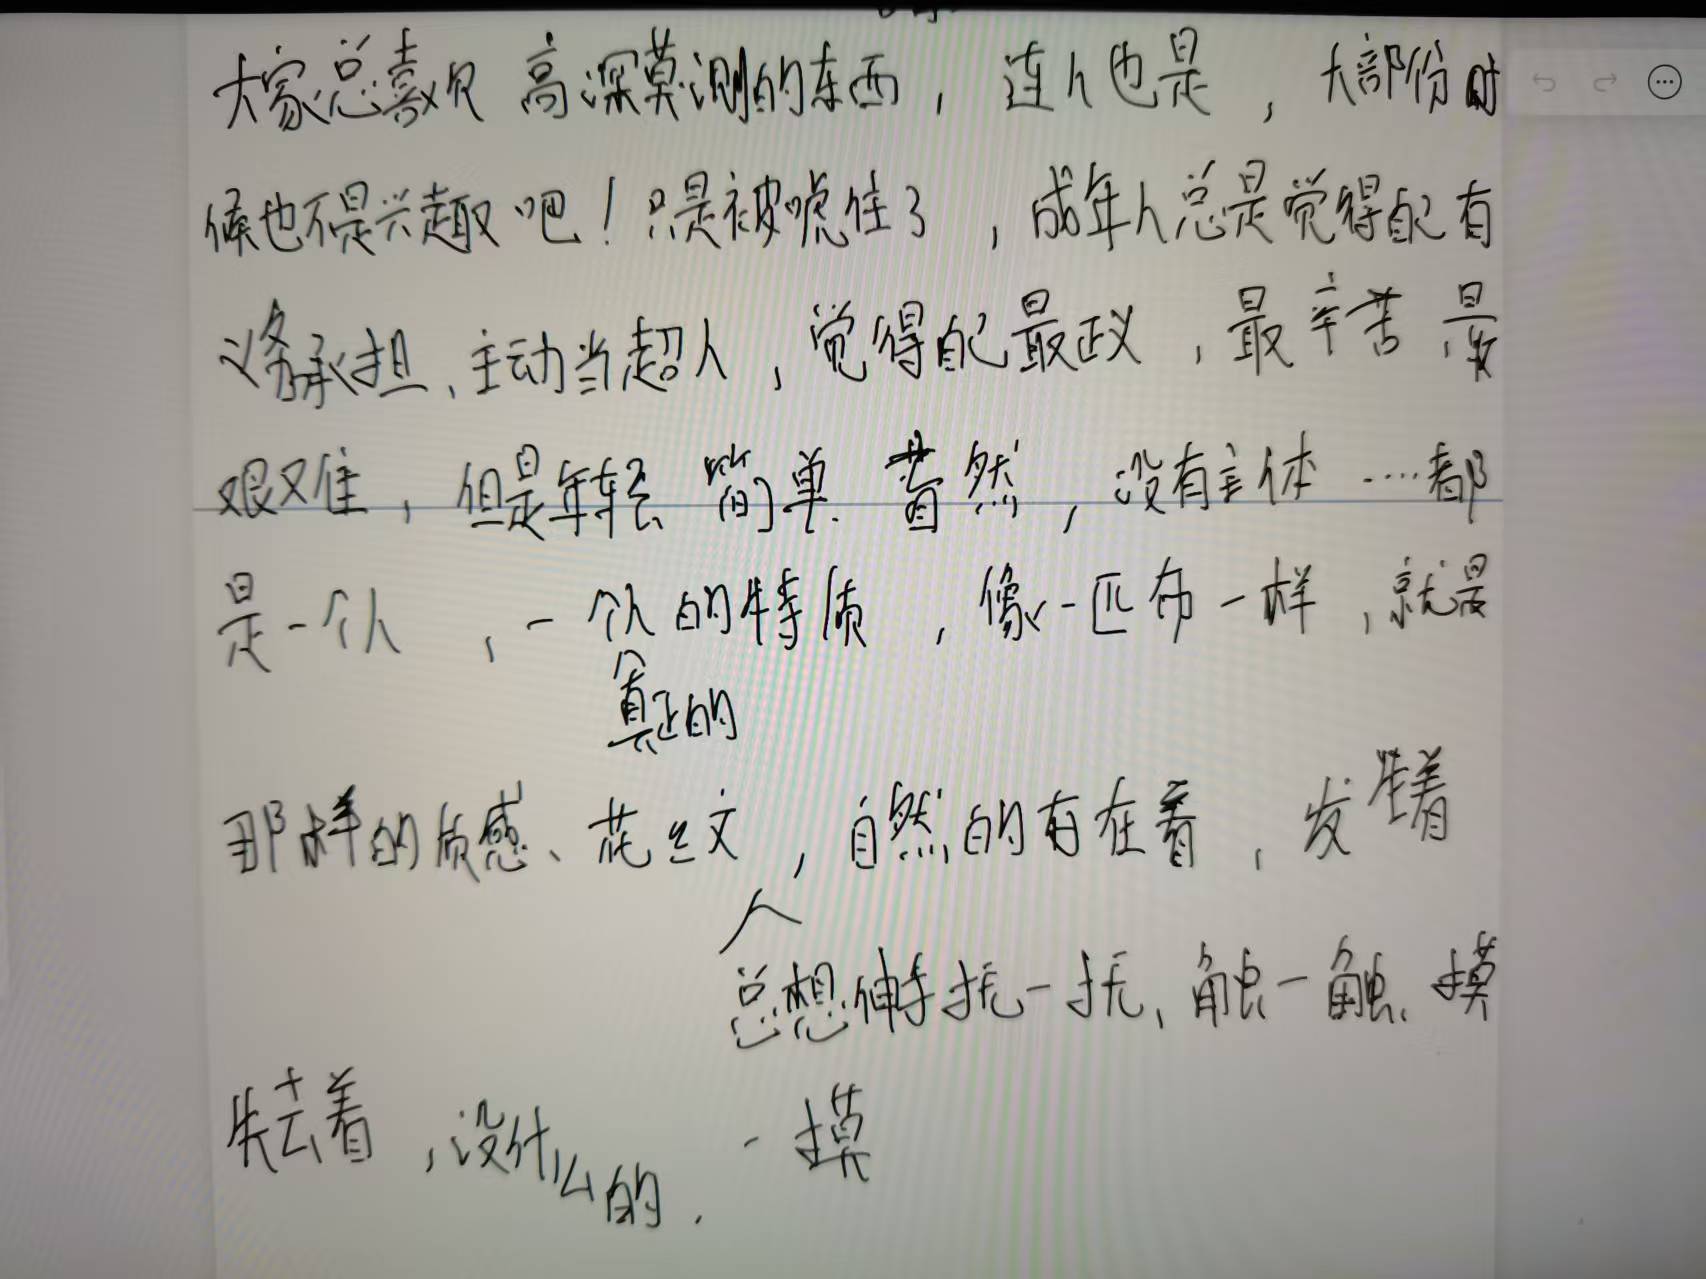 大家总喜欢高深莫测的东西，连人也是，大部份时
候也不是兴趣吧！只是被唬住了，成年人总是觉得自己有
义务承担、主动当超人，觉得自己最正义，最辛苦最
艰难，但是年轻、简单、茫然，没有主体……都
是一个人，一个人的特质，像一匹布一样，就是
真正的
那样的质感、花纹，自然的存在着，发生着
人
总想伸手抚一抚、触一触、摸
失去着，没什么的．一摸